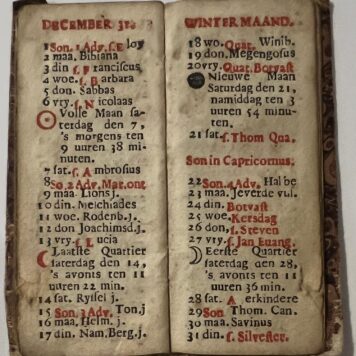 DECEMBER 31.
1 Son. 1 Adv. E loy
2 maa. Bibiana
3 din f. Franciscus
4 woe. f. Barbara
5 don. Sabbas
6 vry. f. Nicolaas
Volle Maan sa-
terdag den 7,
's morgens ten
9 uuren 38 mi-
nuten.
7 sat. f. Ambrosius
8 So. 2 Adv. Mar. ont
9 maa. Lions j.
10 din. Melchiades
11 woe. Rodenb. j.
12 don Joachimsd. j.
13 vry. f. Lucia
Laatste Quartier
saterdag den 14,
's avonts ten 11
uuren 22 min.
14 sat. Ryssel j.
15 Son. 3 Adv. Ton. j
16 maa. Helm. j.
17 din. Nam. Berg. j.
WINTERMAAND.
18 wo. Quat. Winib.
19 do. Megengosus
20 vry. Quat. Botvast
Nieuwe Maan
Saturdag den 21,
namiddag ten 3
uuren 54 minu-
ten.
21 sat. f. Thom Qua.
Son in Capricornus.
22 Son. 4 Adv. Hal be
23 maa. Jeverde vul.
24 din. Botvast
25 woe. Kersdag
26 don. f. Steven
27 vry. f. Jan Euang.
Eerste Quartier
saterdag den 28,
's avonts ten 11
uuren 36 min.
28 sat. A erkindere
29 Son Thom. Can.
30 maa. Savinus
31 din. f. Silvester.